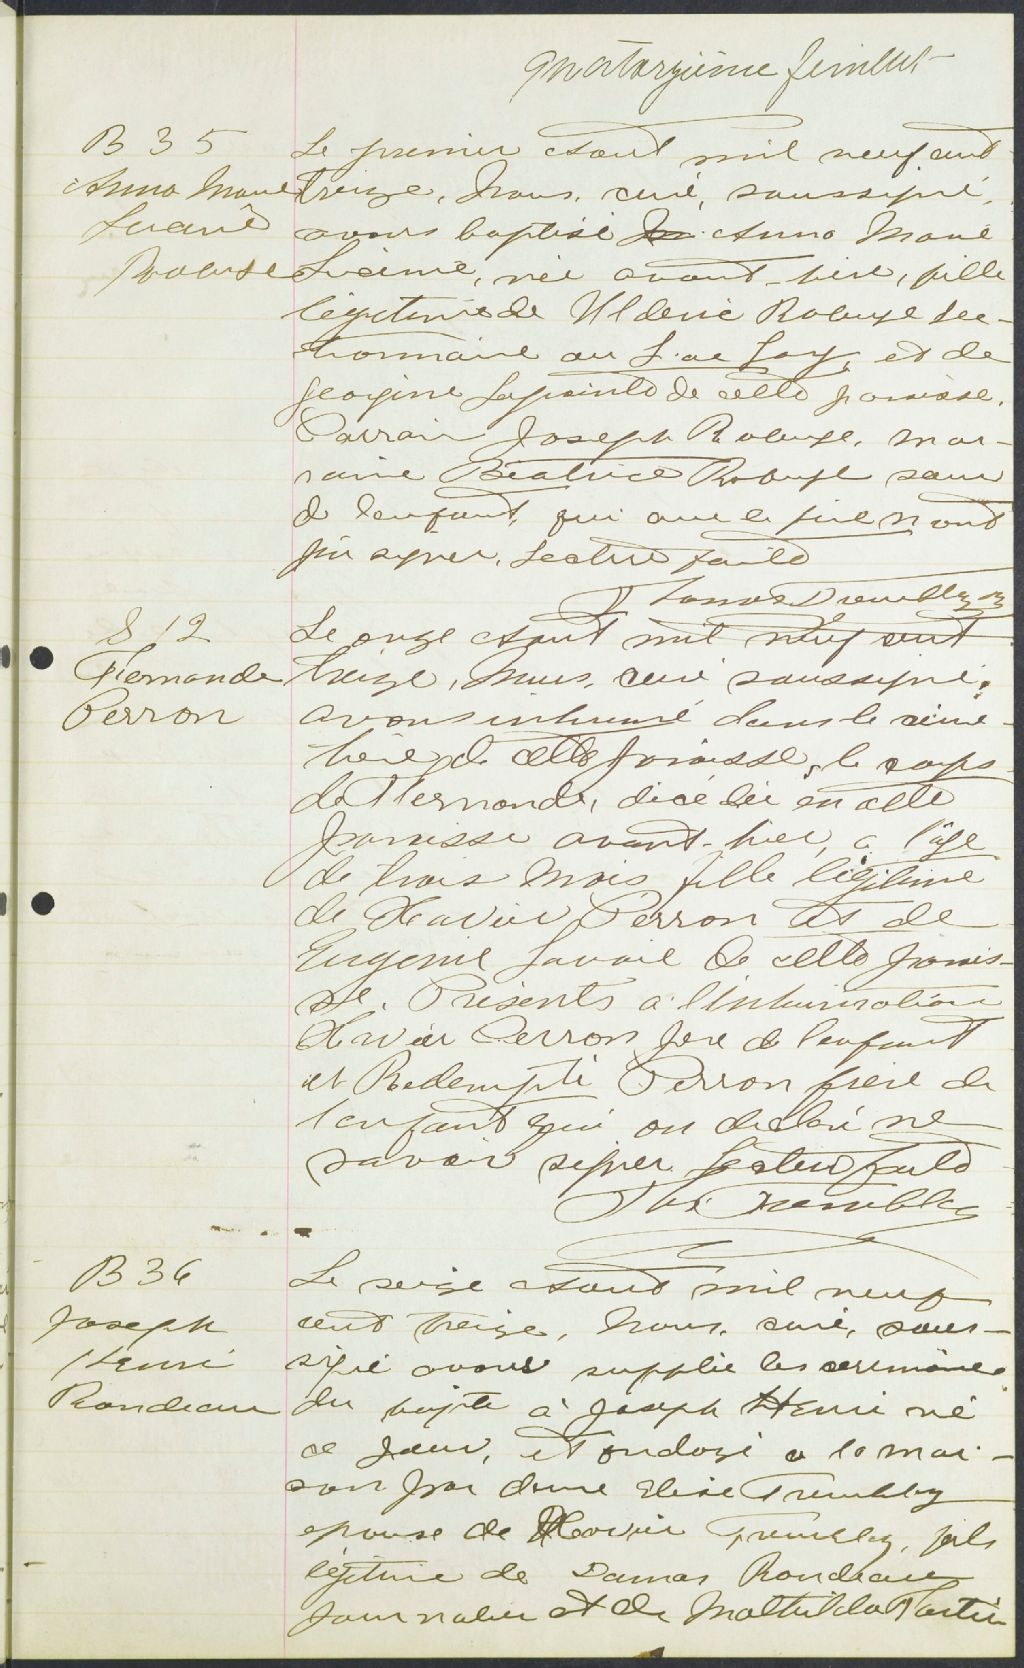 quatorzième feuillet
B 35
Anna Marie
Lucienne
Roberge
Le premier Aout mil neuf cent
treize, Nous, curé, soussigné,
avons baptisé Anna Marie
Lucienne, née avant-hier, fille
légitime de Ulderic Roberge sec-
tionnaire au Lac Gay, et de
Georgine Lapointe de cette paroisse.
Parrain Joseph Roberge, mar-
raine Béatrice Roberge soeur
de l'enfant, qui avec le père n'ont
pu signer. Lecture faite
Thomas Tremblay
S 12
Fernande
Perron
Le onze Aout mil neuf cent
treize, Nous, curé soussigné,
avons inhumé dans le cime-
tière de cette paroisse, le corps
de Fernande, décédée en cette
paroisse avant-hier, a l'age
de trois mois fille légitime
de Xavier Perron et de
Eugenie Savoie de cette parois-
se. Présents a l'inhumation
Xavier Perron père de l'enfant
et Redempti Perron frère de
l'enfant qui on déclaré ne
savoir signer Lecture faite
Ths Tremblay
B 36
Joseph
Henri
Rondeau
Le seize Aout mil neuf
cent treize, Nous, curé, sous-
signé avons supplié les cérémonies
du bapte à Joseph Henri né
ce jour, et ondoyé a la mai-
son par dame Elise Tremblay
epouse de Xavier Tremblay, fils
légitime de Damas Rondeau
journalier et de Mathilda Fortin